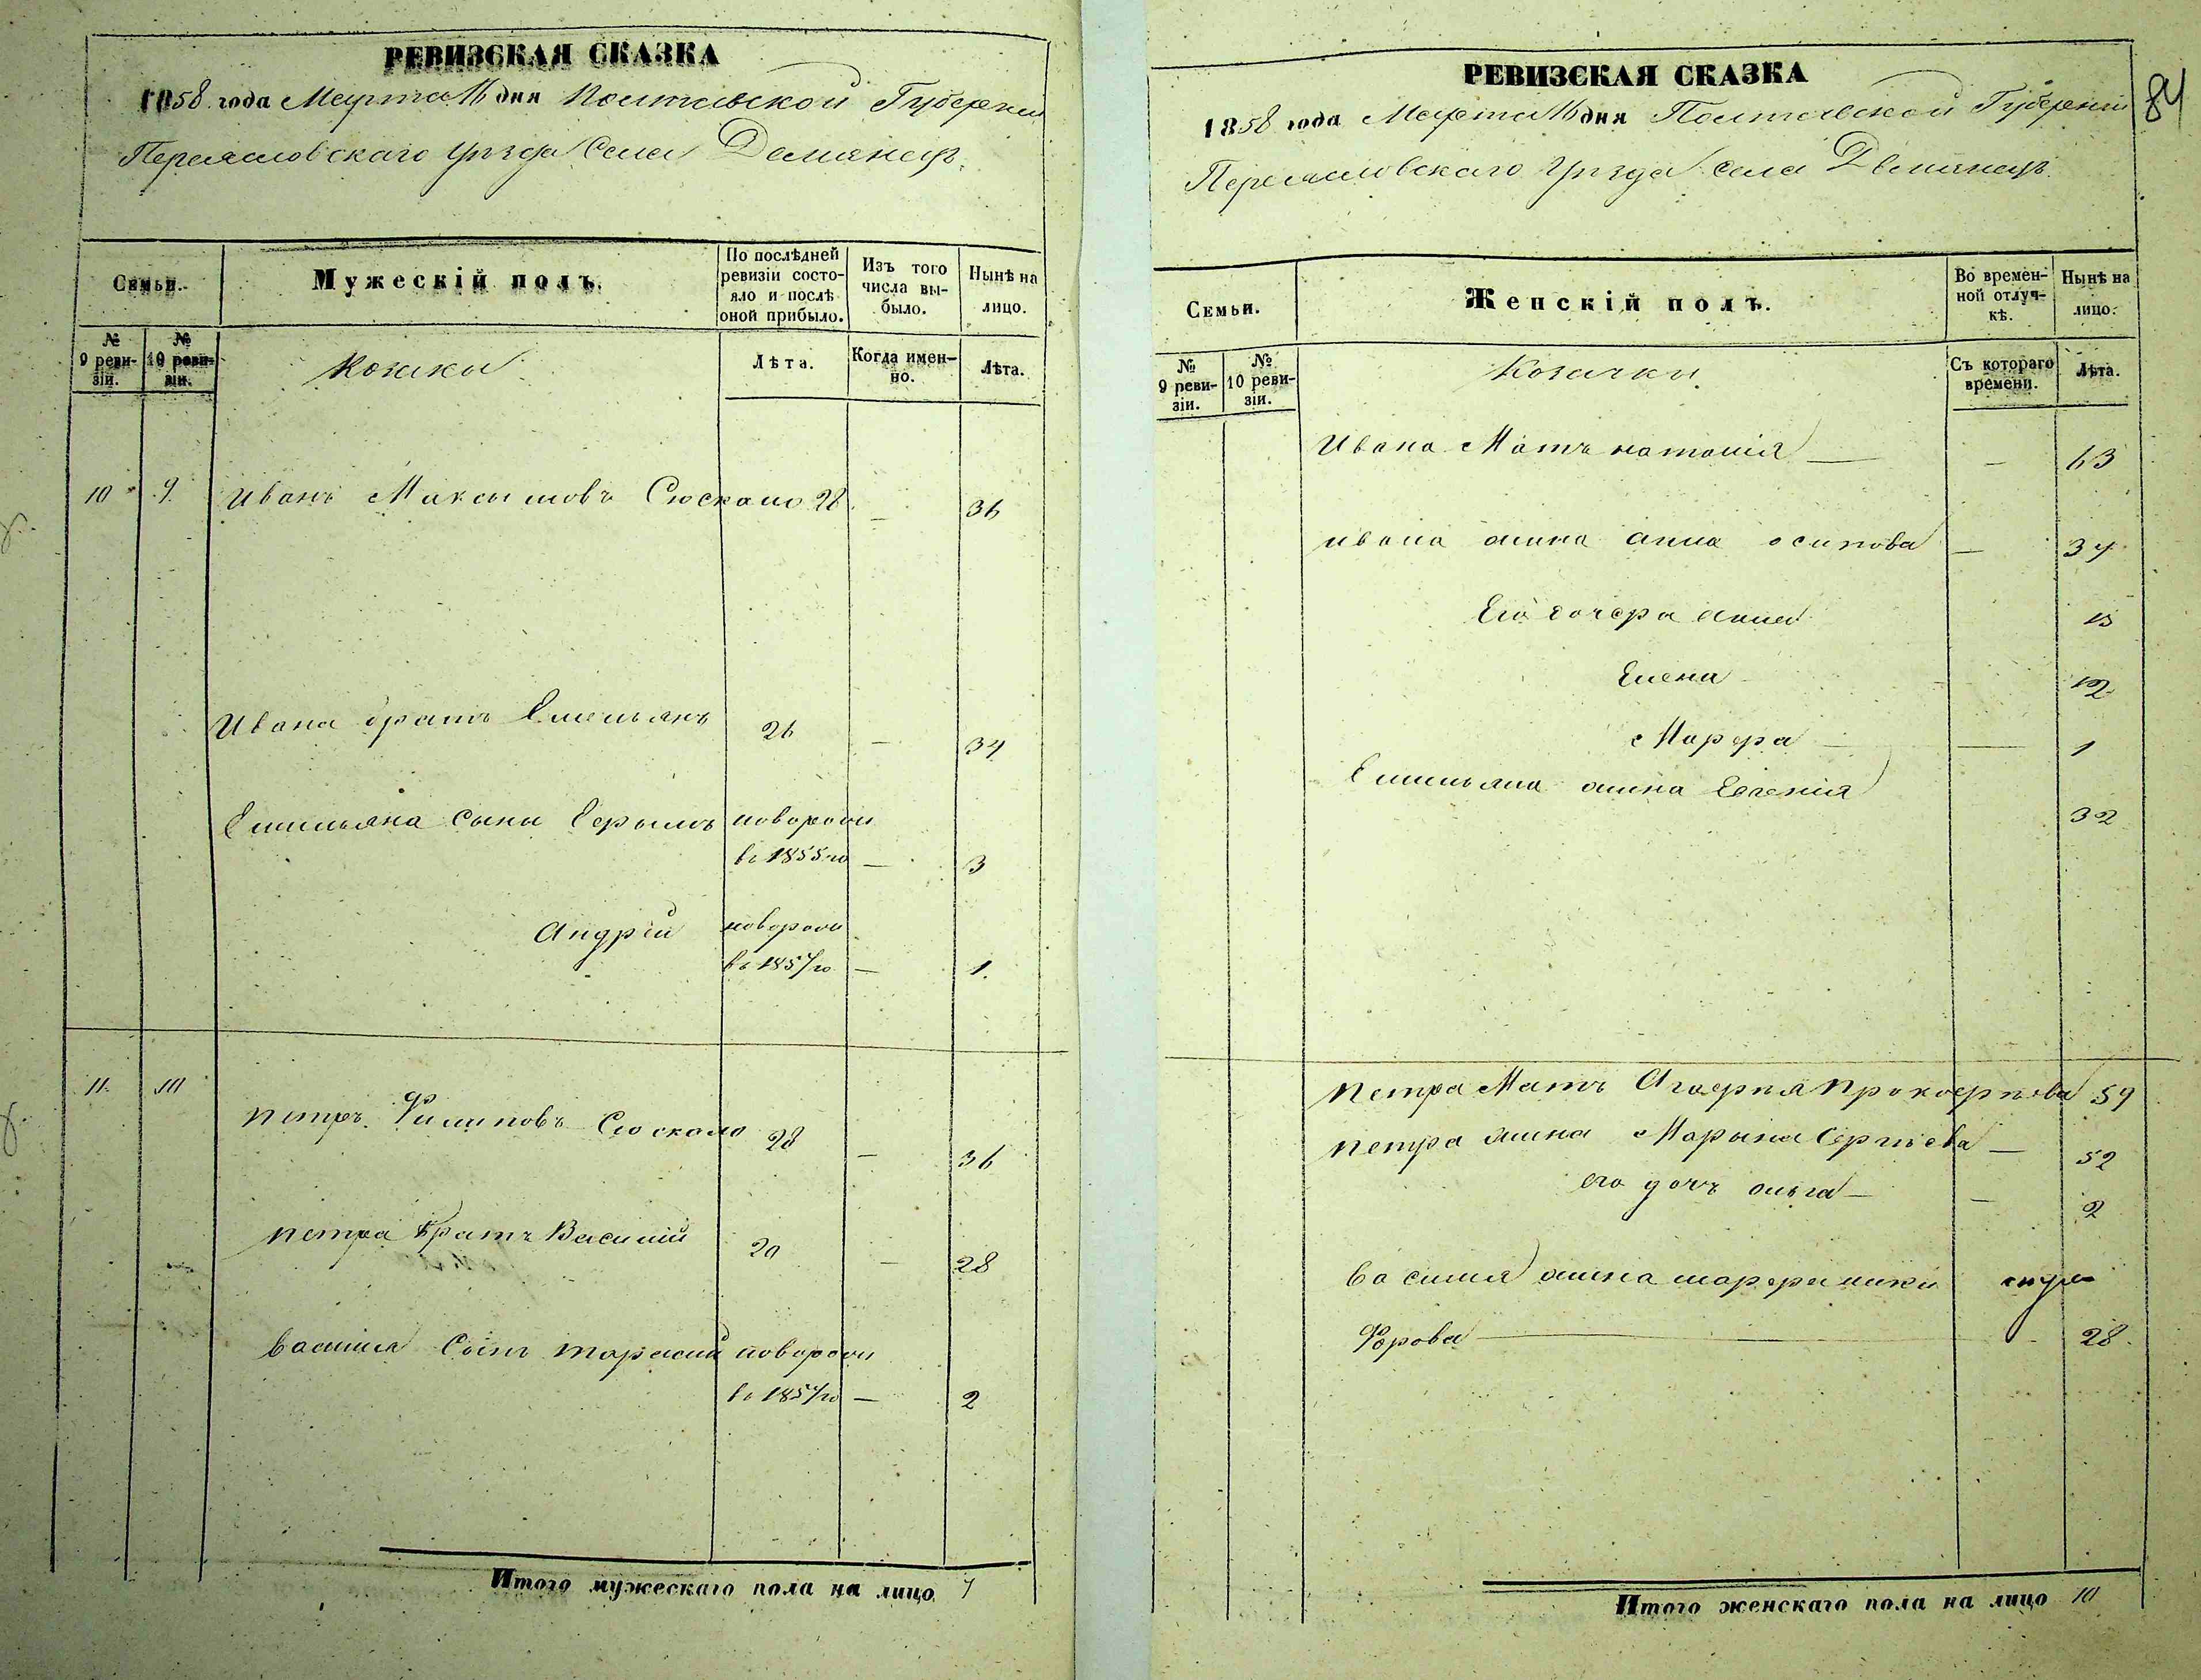 РЕВИЗСКАЯ СКАЗКА
1858 года Марта 16 дня Полтавской Губерніи
Переяславскаго уѣзда Села Демянецъ.
Семьи.
Мужескій полъ.
По послѣдней ревизіи состояло и послѣ оной прибыло.
Изъ того числа выбыло.
Нынѣ на лицо.
№ 9 ревизіи.
№ 10 ревизіи.
Козаки
Лѣта.
Когда именно.
Лѣта.
10 9. Иванъ Максымовъ Сюскало 28 — 36
Ивана братъ Емельянъ 26 — 34
Емельяна сыны Ефымъ новорож
въ 1855 го — 3
Андрій новорож
въ 1857 го — 1.
11. 10 Петръ Филиповъ Сюскало 28 — 36
Петра братъ Василій 20 — 28
Василія Сынъ Тарасій новорож
въ 1857 го — 2
Итого мужескаго пола на лицо 7
РЕВИЗСКАЯ СКАЗКА
84
1858 года Марта 16 дня Полтавской Губерніи
Переяславскаго Уѣзда Села Демянецъ.
Семьи.
Женскій полъ.
Во временной отлучкѣ.
Нынѣ на лицо.
№ 9 ревизіи.
№ 10 ревизіи.
Козачки.
Съ котораго времени.
Лѣта.
Ивана Мать наталія — — 63
ивана жина анна осипова — 34
Его дочера анна 13
Елена 12
Марфа — — 1
Емильяна жина Евгенія 32
Петра Мать Агафия Прокофиева 59
Петра жина Марына Сергіева — 52
его дочъ ольга — — 2
Василія жина
Форова — 28
Итого женскаго пола на лицо 10